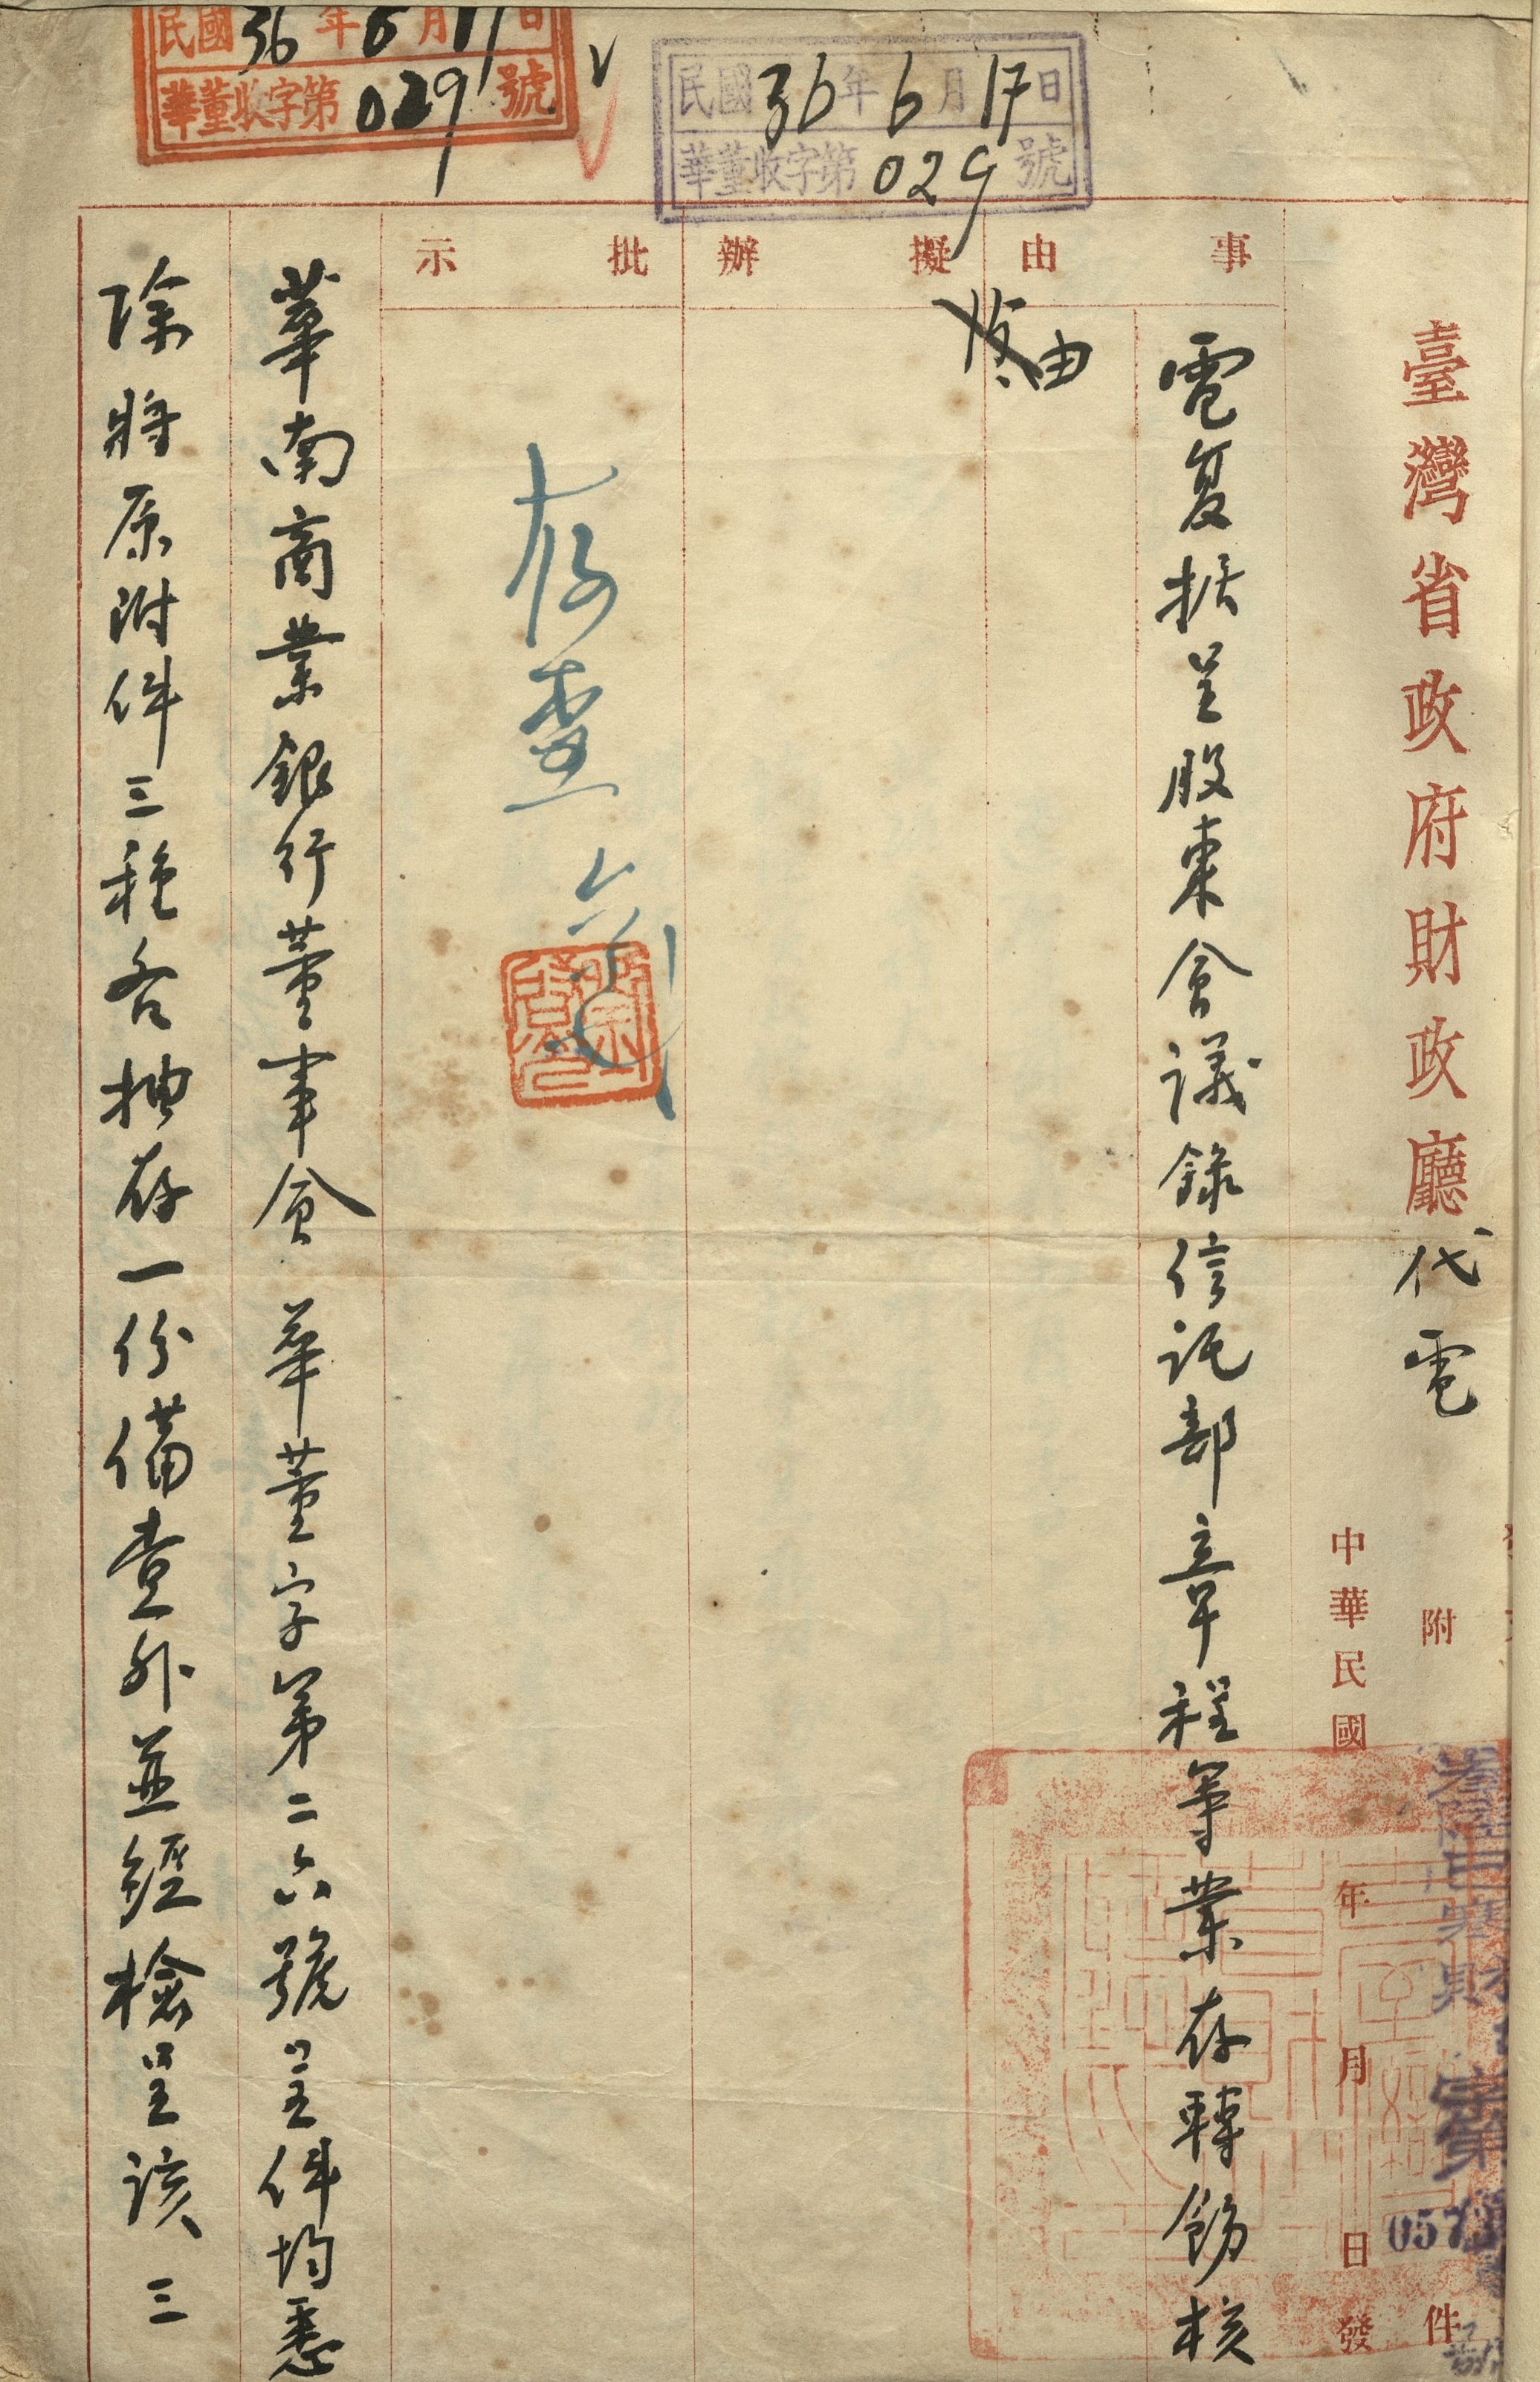 民國36年6月17日
華董收字第029號
民國36年6月17日
華董收字第029號
臺灣省政府財政廳代電
附件
中華民國 年 月 日發
0573
字第
事由
電复據呈股東會議錄信託部章程等業存轉飭核
由
擬辦
批示
存查
華南商業銀行董事會 華董字第二六號呈件均悉
除將原附件三種各抽存一份備查外並經檢呈該三